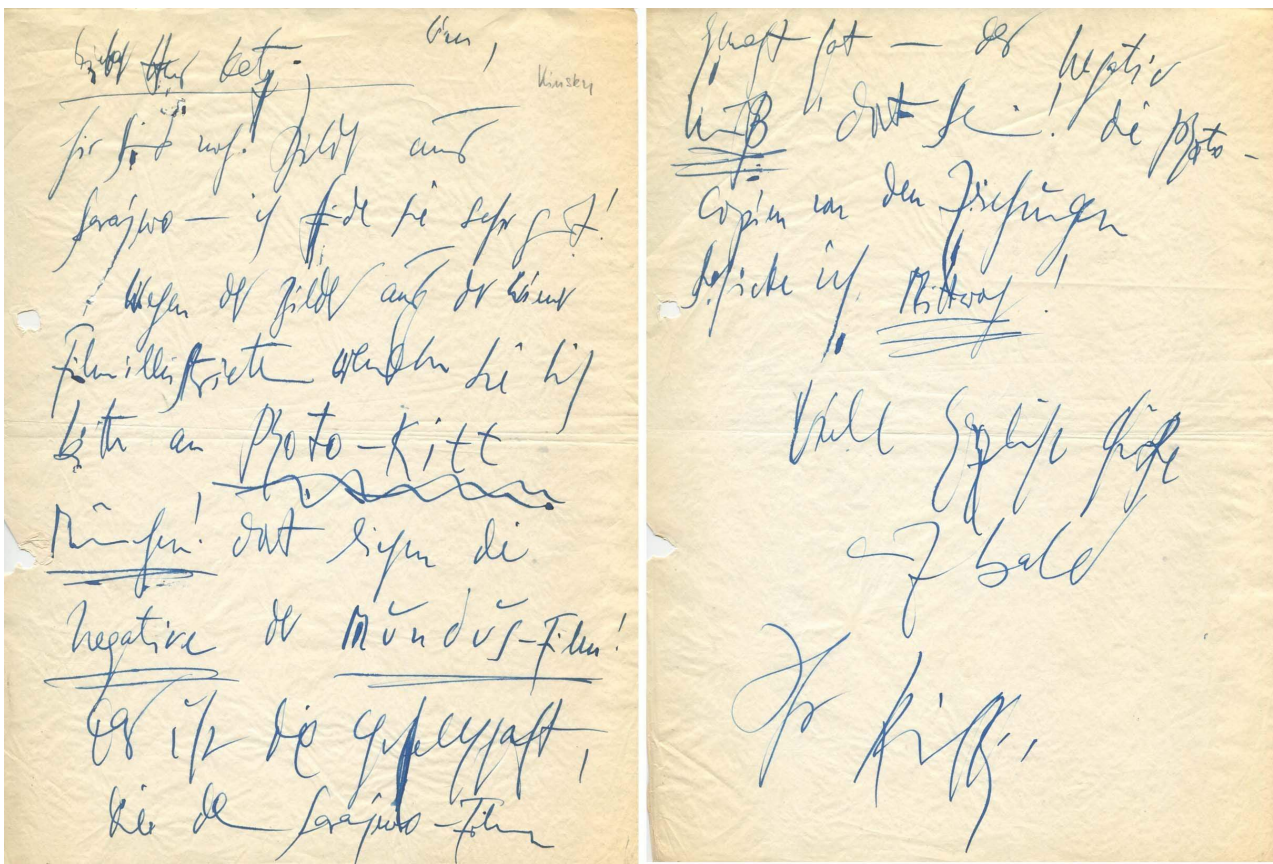 Wien,
Lieber Herr
Kinsky
hier sind noch Bilder aus
Sarajewo – ich finde sie sehr gut!
Wegen der Bilder aus der Wiener
Filmillustrierten wenden Sie sich
bitte an Photo-Kitt
München! dort liegen die
Negative der Mundus-Film!
Das ist die Gesellschaft,
die den Sarajewo-Film
gemacht hat – das Negativ
muß dort sein! die Photo-
Copien von den Zeichnungen
schicke ich Mittwoch!
Viele herzliche Grüße
bald
Ihr